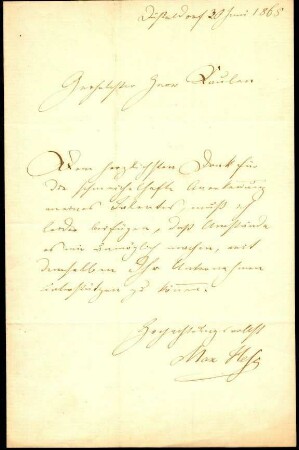 Düsseldorf 20 Juni 1865
Geehrtester Herr Kaulen
Dem herzlichsten Dank für
die schmeichelhafte Anerkennung
meines Talentes, muß ich
leider beifügen, daß Umstände
es mir unmöglich machen, mit
demselben Ihr Unternehmen
unterstützen zu können.
Hochachtungsvollst
Max Heß